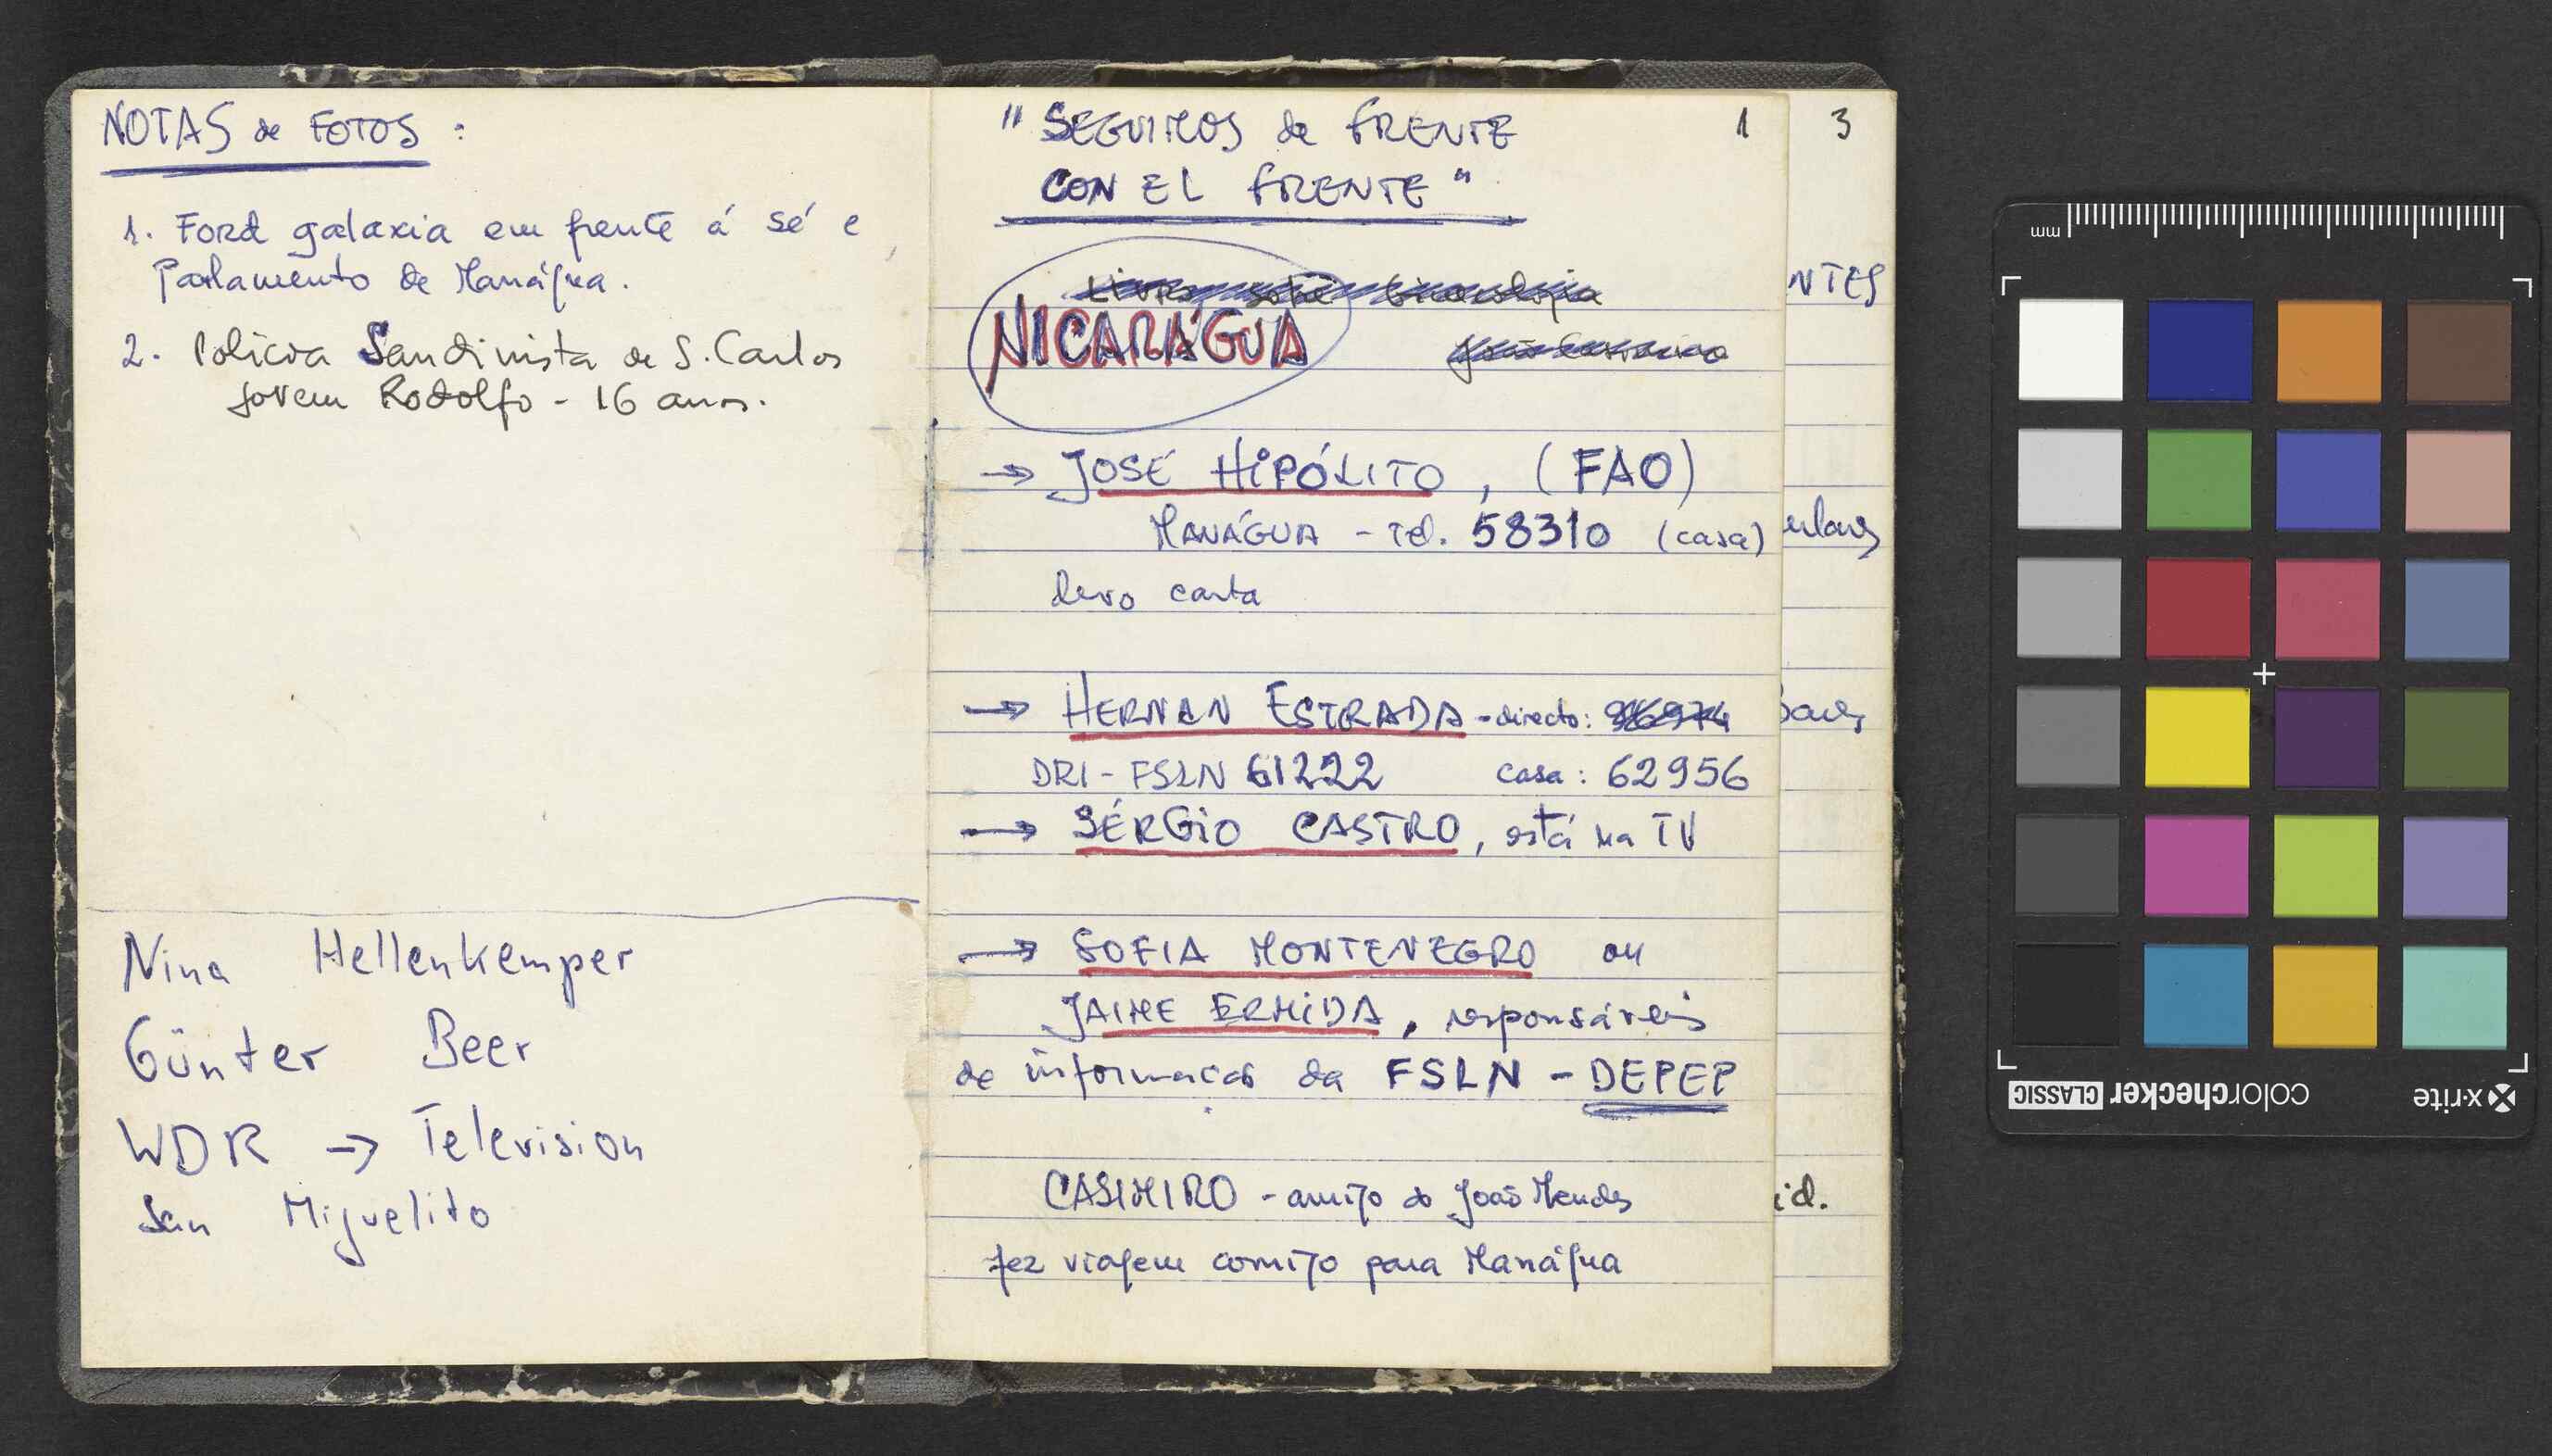 NOTAS de FOTOS :
1. Ford galaxia em frente á sé e
Parlamento de Manágua.
2. Policia Sandinista de S. Carlos
Jovem Rodolfo - 16 anos.
Nina Hellenkemper
Günter Beer
WDR → Television
San Miguelito
"SEGUIMOS de FRENTE 1
CON EL FRENTE"
NICARÁGUA
→ JOSÉ HIPÓLITO, (FAO)
MANÁGUA - Tel. 58310 (casa)
levo carta
→ HERNAN ESTRADA - directo:
DRI - FSLN 61222 casa: 62956
→ SÉRGIO CASTRO, está na TV
→ SOFIA MONTENEGRO ou
JAIME ERMIDA, responsáveis
de informacão da FSLN - DEPEP
CASIMIRO - amigo do João Mendes
fez viagem comigo para Manágua
3
NTES
id.
mm
colorchecker CLASSIC
x-rite